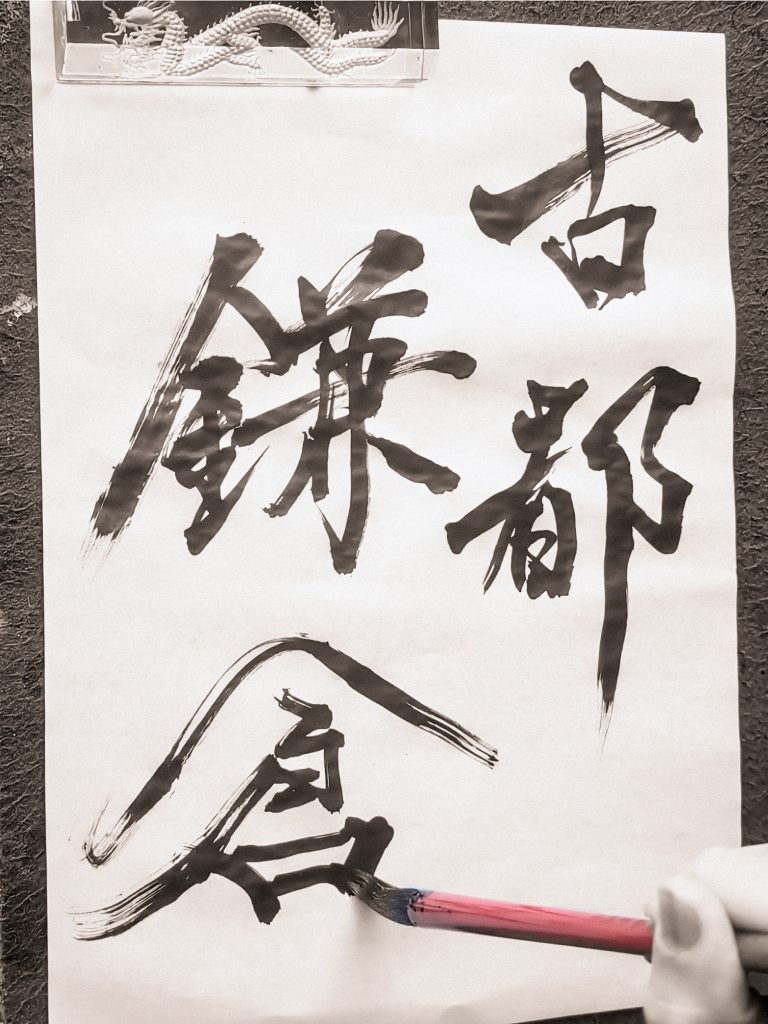 古都
鎌倉